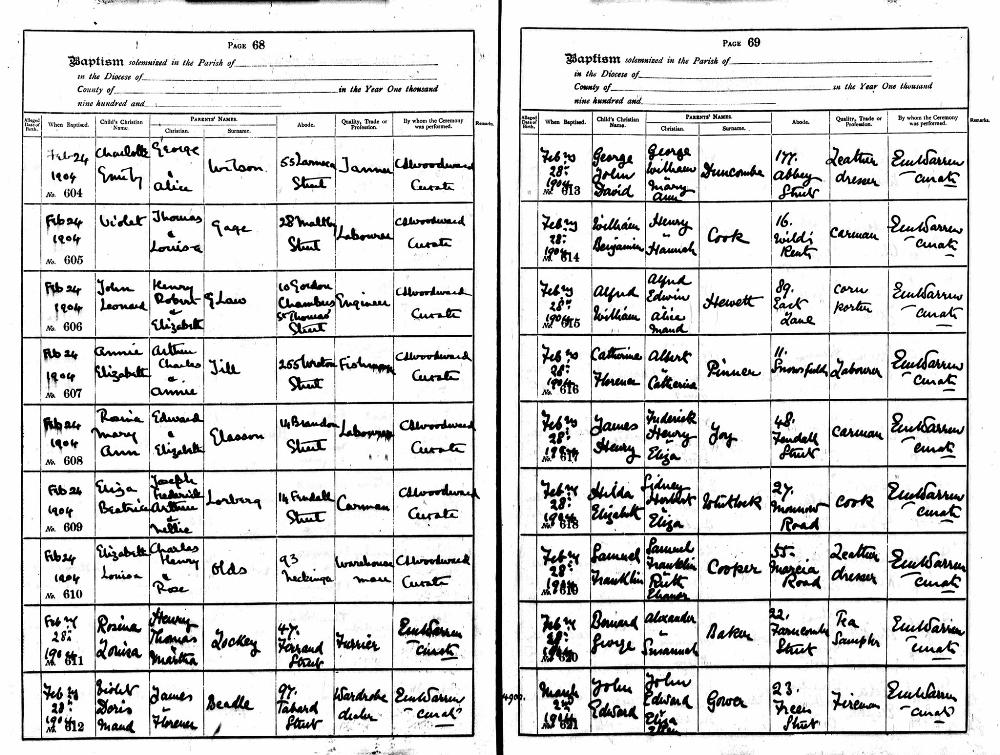 PAGE 68
Baptism solemnized in the Parish of
in the Diocese of
County of in the Year One thousand
nine hundred and
Alleged Date of Birth. When Baptised. Child's Christian Name. PARENTS' NAMES. Christian. Surname. Abode. Quality, Trade or Profession. By whom the Ceremony was performed. Remarks.
Feb 24 1904 No. 604 Charlotte Emily George & Alice Wilson 55 Street Tanner CDwoodward Curate
Feb 24 1904 No. 605 Violet Thomas & Louisa Gage 28 Maltby Street Labourer CDwoodward Curate
Feb 24 1904 No. 606 John Leonard Henry Robert & Elizabeth 10 Gordon Chambers St Thomas' Street Engineer CDwoodward Curate
Feb 24 1904 No. 607 Annie Elizabeth Arthur Charles & Annie 255 Street CDwoodward Curate
Feb 24 1904 No. 608 Rosina Mary Ann Edward & Elizabeth Elasson 14 Brandon Street Labourer CDwoodward Curate
Feb 24 1904 No. 609 Eliza Beatrice Joseph Frederick Arthur & Nellie 14 Street Carman CDwoodward Curate
Feb 24 1904 No. 610 Elizabeth Louisa Charles Henry & Rose Olds 93 Neckinga Warehouse man CDwoodward Curate
Feb ry 28: 1904 No. 611 Rosina Louisa Henry Thomas Martha Lockey 47. Street Furrier EmWarren curate
Feb ry 28: 1904 No. 612 Violet Doris Maud James & Florence Beadle 97. Tabard Street Wardrobe dealer EmWarren curate
PAGE 69
Baptism solemnized in the Parish of
in the Diocese of
County of in the Year One thousand
nine hundred and
Alleged Date of Birth. When Baptised. Child's Christian Name. PARENTS' NAMES. Christian. Surname. Abode. Quality, Trade or Profession. By whom the Ceremony was performed. Remarks.
Feb ry 28: 1904 No. 613 George John David George William & Mary Ann Duncombe 177. Abbey Street Leather dresser EmWarren curate
Feb ry 28: 1904 No. 614 William Benjamin Henry & Hannah Cook 16. Wild's Rents carman EmWarren curate
Feb ry 28: 1904 No. 615 Alfred William Alfred Edwin & Alice Maud Hewett 89. East Lane corn porter EmWarren curate
Feb ry 28: 1904 No. 616 Catherine Florence Albert & Catherine Pinner 11. Snowsfields Labourer EmWarren curate
Feb ry 28: 1904 No. 617 James Henry Frederick Henry & Eliza Joy 48. Fendall Street carman EmWarren curate
Feb ry 28: 1904 No. 618 Hilda Elizabeth Sidney Herbert & Eliza Whitlock 27. Monnow Road Cook EmWarren curate
Feb ry 28: 1904 No. 619 Samuel Franklin Samuel Franklin & Ruth Eleanor Cooper 55. Marcia Road Leather dresser EmWarren curate
Feb ry 28: 1904 No. 620 Bernard George Alexander & Susannah Baker 22. Farncombe Street Tea Sampler EmWarren curate
1902. 1904 No. 621 John Edward John Edward & Eliza Ellen Gower 23. Street Fireman EmWarren curate